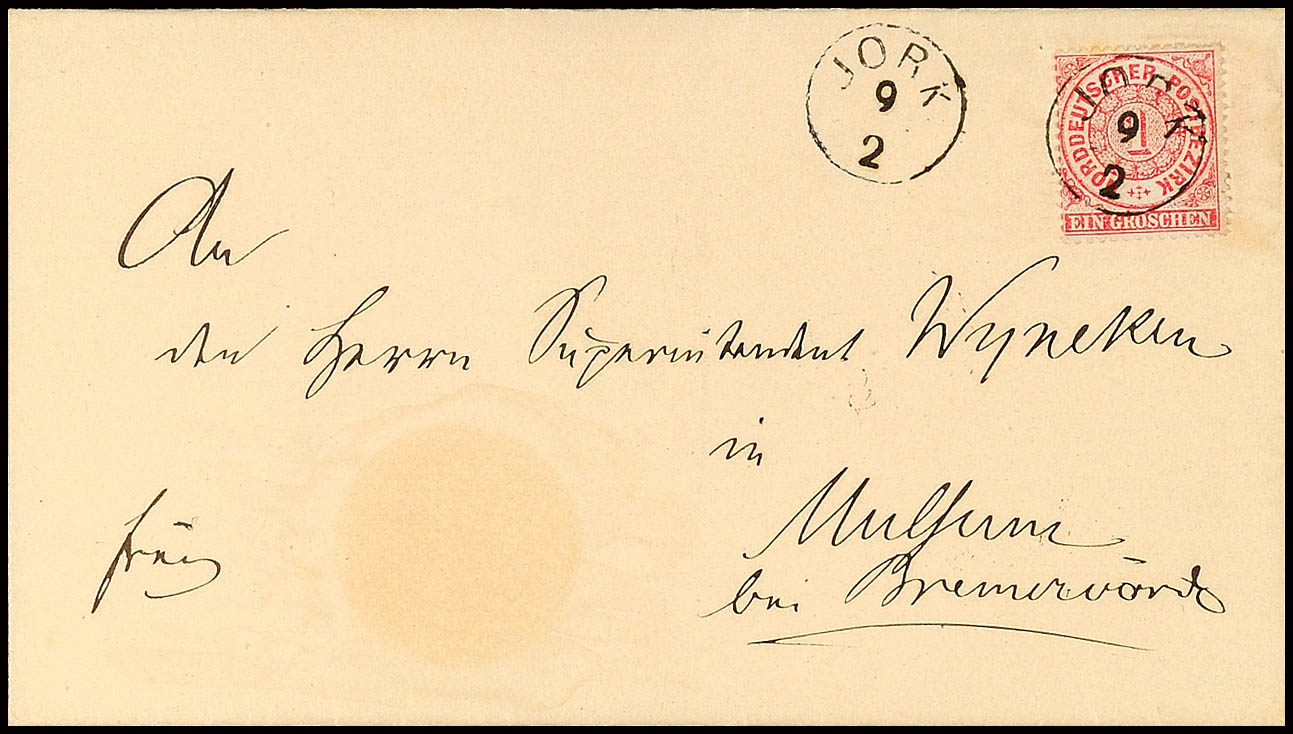 JORK
9
2
NORDDEUTSCHER POSTBEZIRK
1
EIN GROSCHEN
JORK
9
2
An
den Herrn Superintendent Wyneken
in
Mulsum
bei Bremervörde
frei